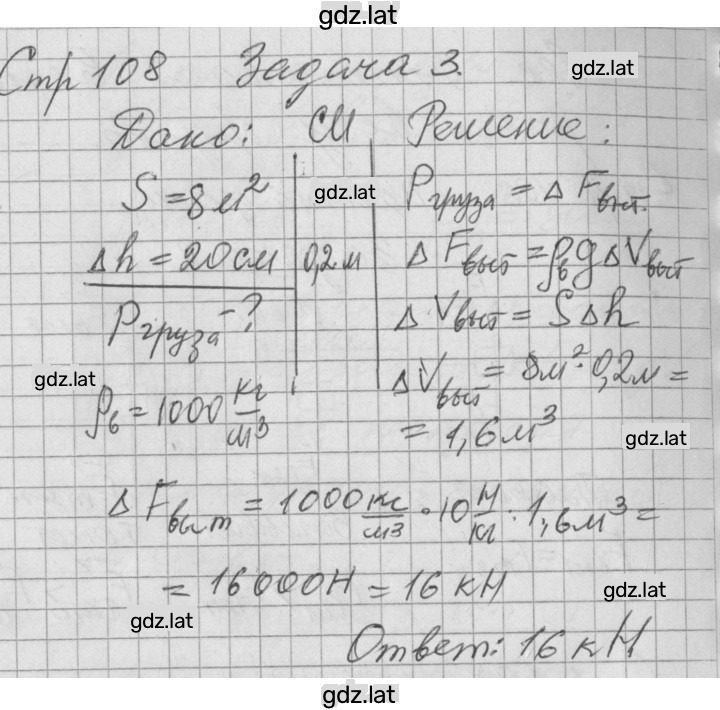 gdz.lat
Стр 108 Задача 3.
gdz.lat
Дано: СИ Решение:
S = 8 м² gdz.lat Pгруза = Δ Fвыт.
Δh = 20 см 0,2 м Δ Fвыт = ρв g Δ Vвыт
Pгруза - ? Δ Vвыт = S Δh
gdz.lat Δ Vвыт = 8 м² · 0,2 м =
ρв = 1000 кг/м³ = 1,6 м³
gdz.lat
Δ Fвыт = 1000 кг/м³ · 10 Н/кг · 1,6 м³ =
= 16000 Н = 16 кН gdz.lat
gdz.lat Ответ: 16 кН
gdz.lat